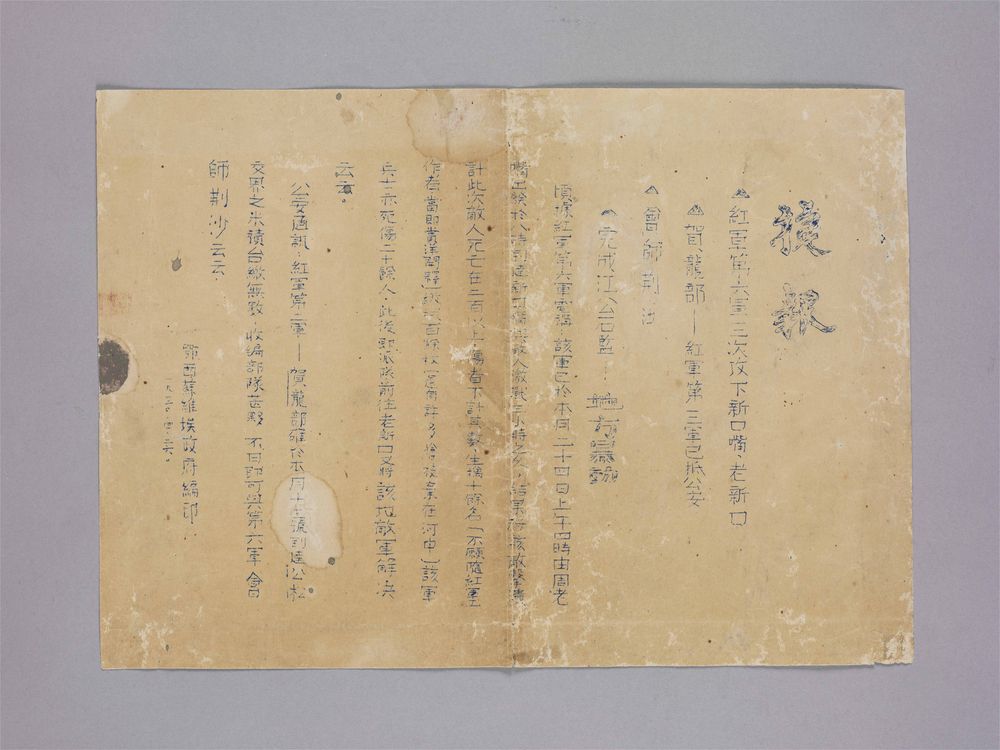 捷報
▲紅軍第六軍三次攻下新口嘴、老新口
▲賀龍部—紅軍第三軍已抵公安
▲會師荆沙
▲完成江公石監……地方暴動
頃據紅軍第六軍電稱 該軍已於本月二十四日上午四時由周老
嘴出發於八時到達新口 與敵人激戰三小時之久，結果 將該敵擊潰
計此次敵人死亡在二百以上，傷者不計其數 生擒十餘名（不願隨紅軍工
作者當即黄洋開釋）繳 百餘枝（還有許多槍枝棄在河中）該軍
兵士亦死傷二十餘人，此後即派隊前往老新口又將該地敵軍解決
云云。
公安通訊：紅軍第二軍—賀龍部隊於本月十 號到達公松
交界之米積台繳無數 收編部隊甚夥 不日即可與第六軍會
師荆沙云云
鄂西蘇維埃政府編印
一九三〇、四、二六。